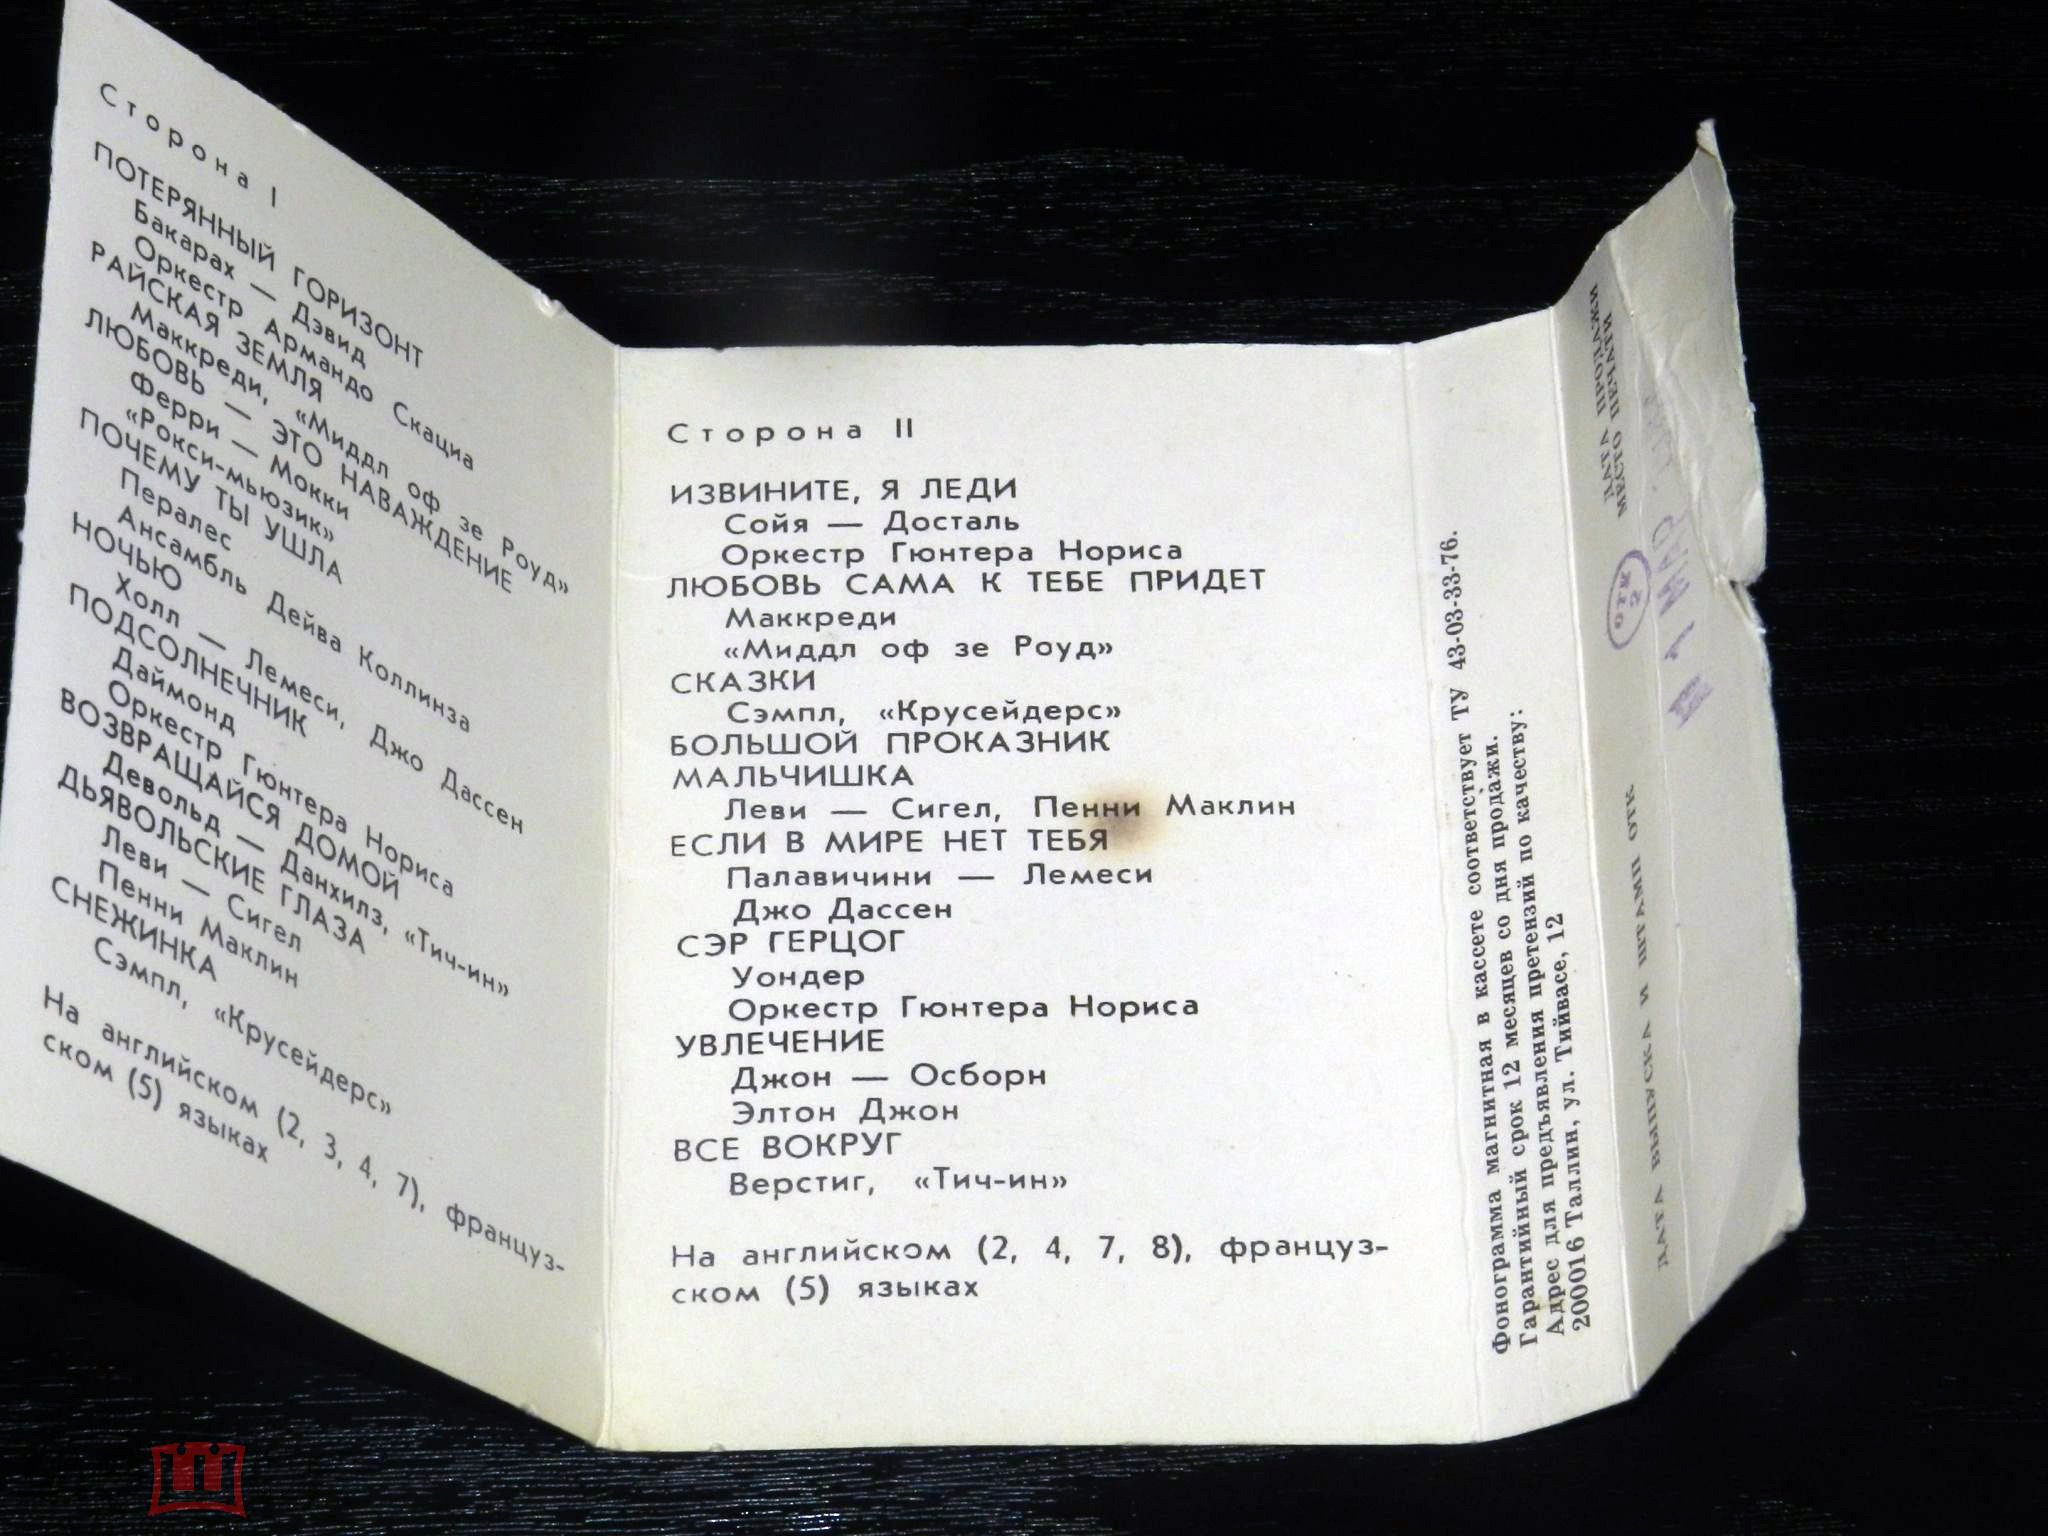 Сторона I
ПОТЕРЯННЫЙ ГОРИЗОНТ
Бакарах — Дэвид
Оркестр Армандо Скациа
РАЙСКАЯ ЗЕМЛЯ
Маккреди, «Миддл оф зе Роуд»
ЛЮБОВЬ — ЭТО НАВАЖДЕНИЕ
Ферри — Мокки
«Рокси-мьюзик»
ПОЧЕМУ ТЫ УШЛА
Пералес
Ансамбль Дейва Коллинза
НОЧЬЮ
Холл — Лемеси, Джо Дассен
ПОДСОЛНЕЧНИК
Даймонд
Оркестр Гюнтера Нориса
ВОЗВРАЩАЙСЯ ДОМОЙ
Девольд — Данхилз, «Тич-ин»
ДЬЯВОЛЬСКИЕ ГЛАЗА
Леви — Сигел
Пенни Маклин
СНЕЖИНКА
Сэмпл, «Крусейдерс»
На английском (2, 3, 4, 7), француз-
ском (5) языках
Сторона II
ИЗВИНИТЕ, Я ЛЕДИ
Сойя — Досталь
Оркестр Гюнтера Нориса
ЛЮБОВЬ САМА К ТЕБЕ ПРИДЕТ
Маккреди
«Миддл оф зе Роуд»
СКАЗКИ
Сэмпл, «Крусейдерс»
БОЛЬШОЙ ПРОКАЗНИК
МАЛЬЧИШКА
Леви — Сигел, Пенни Маклин
ЕСЛИ В МИРЕ НЕТ ТЕБЯ
Палавичини — Лемеси
Джо Дассен
СЭР ГЕРЦОГ
Уондер
Оркестр Гюнтера Нориса
УВЛЕЧЕНИЕ
Джон — Осборн
Элтон Джон
ВСЕ ВОКРУГ
Верстиг, «Тич-ин»
На английском (2, 4, 7, 8), француз-
ском (5) языках
Фонограмма магнитная в кассете соответствует ТУ 43-03-33-76.
Гарантийный срок 12 месяцев со дня продажи.
Адрес для предъявления претензий по качеству:
200016 Таллин, ул. Тийвасе, 12
ДАТА ВЫПУСКА И ШТАМП ОТК
ДАТА ПРОДАЖИ
МЕСТО ПЕЧАТИ
ОТК
2
1 МАР